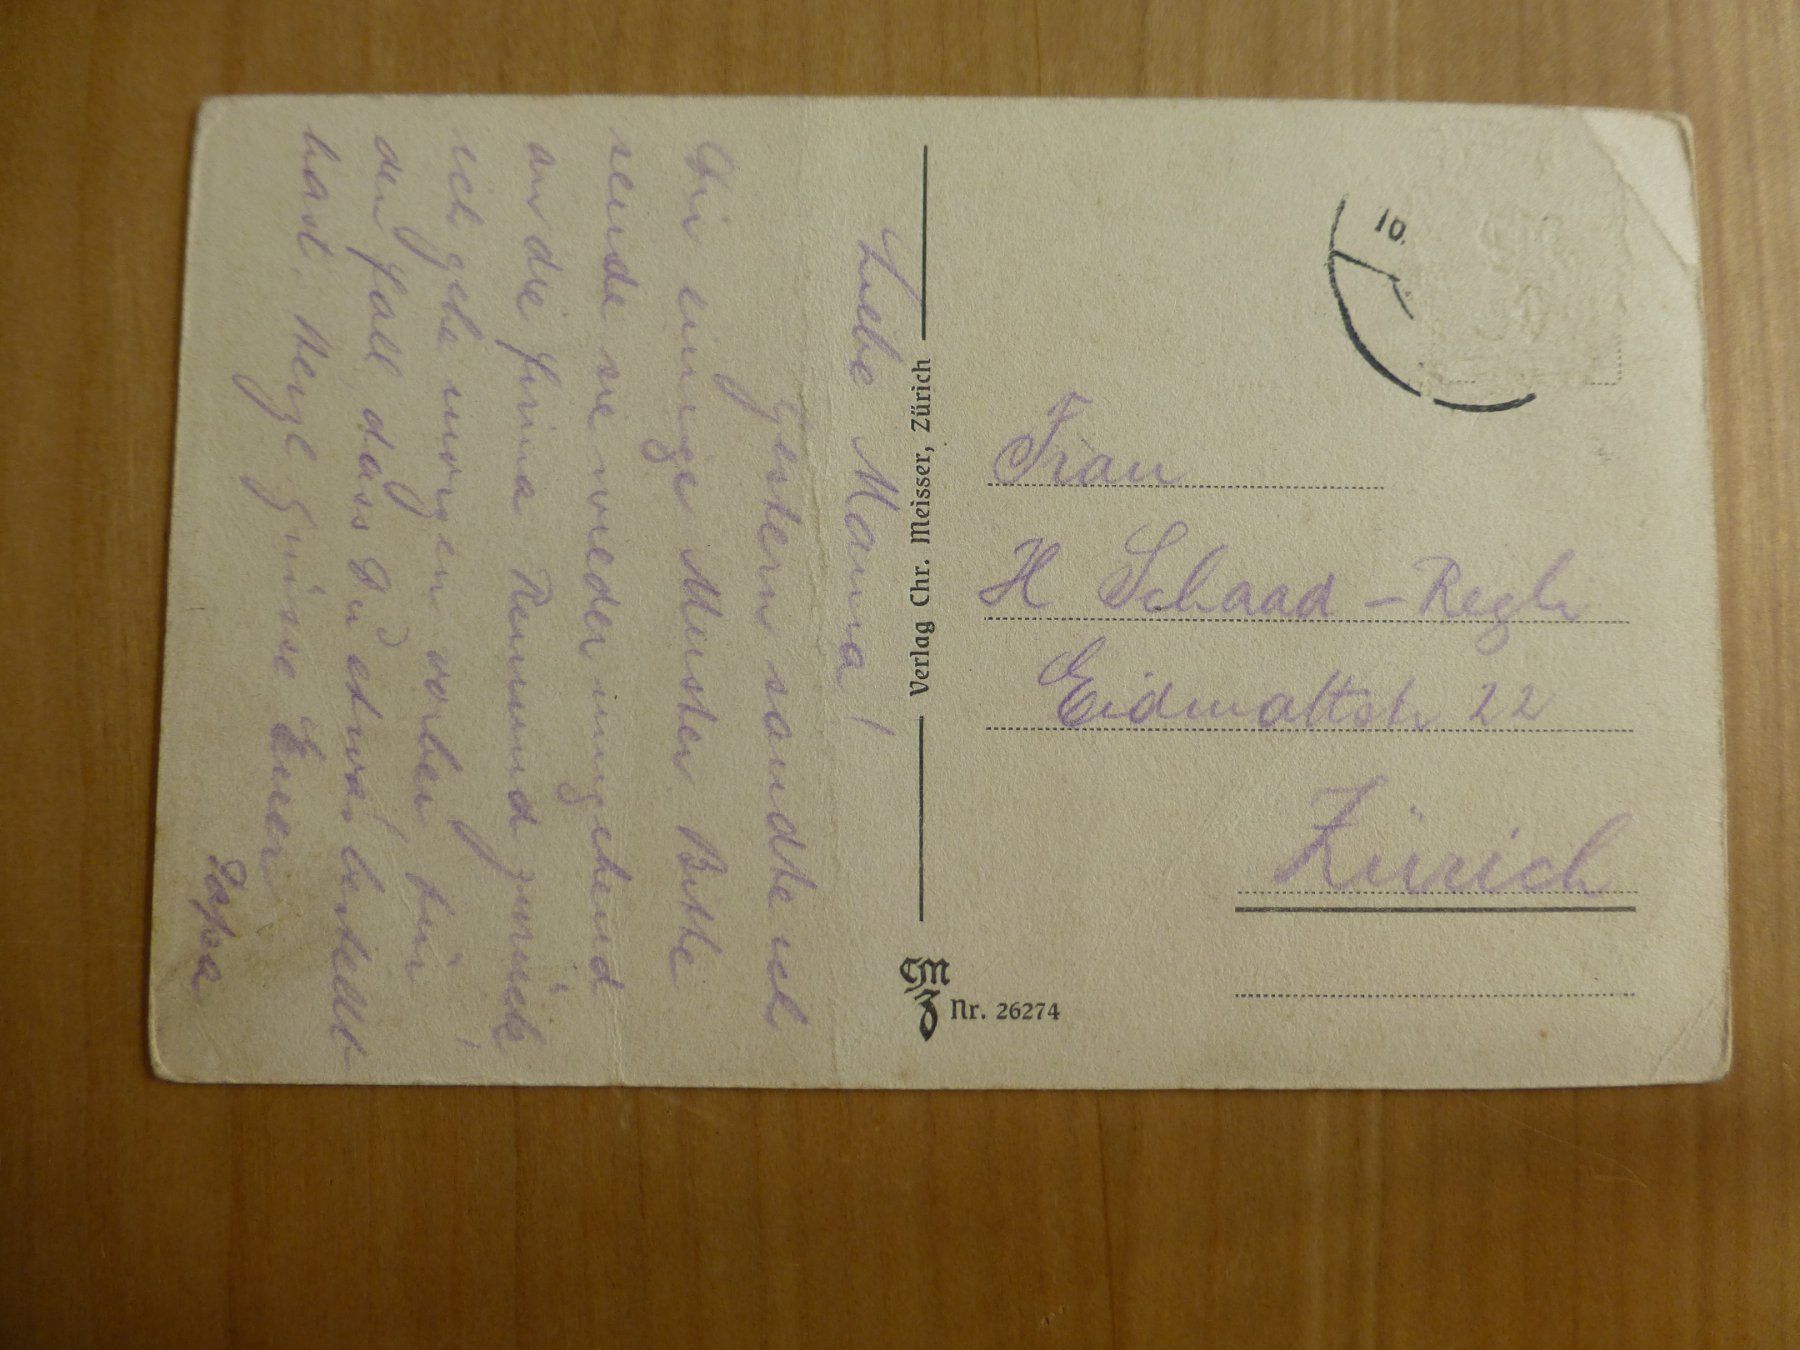 Liebe Mama!
Gestern sandte ich
Dir einige Muster. Bitte
sende sie wieder umgehend
an die Firma Remund zurück,
ich gehe morgen vorbei für
den Fall, dass Du etwas bestellt
hast. Herzl Grüsse Euer
Papa
Verlag Chr. Meisser, Zürich
CMZ
Nr. 26274
10.
Frau
H Schaad - Regli
Eidmattstr 22
Zürich